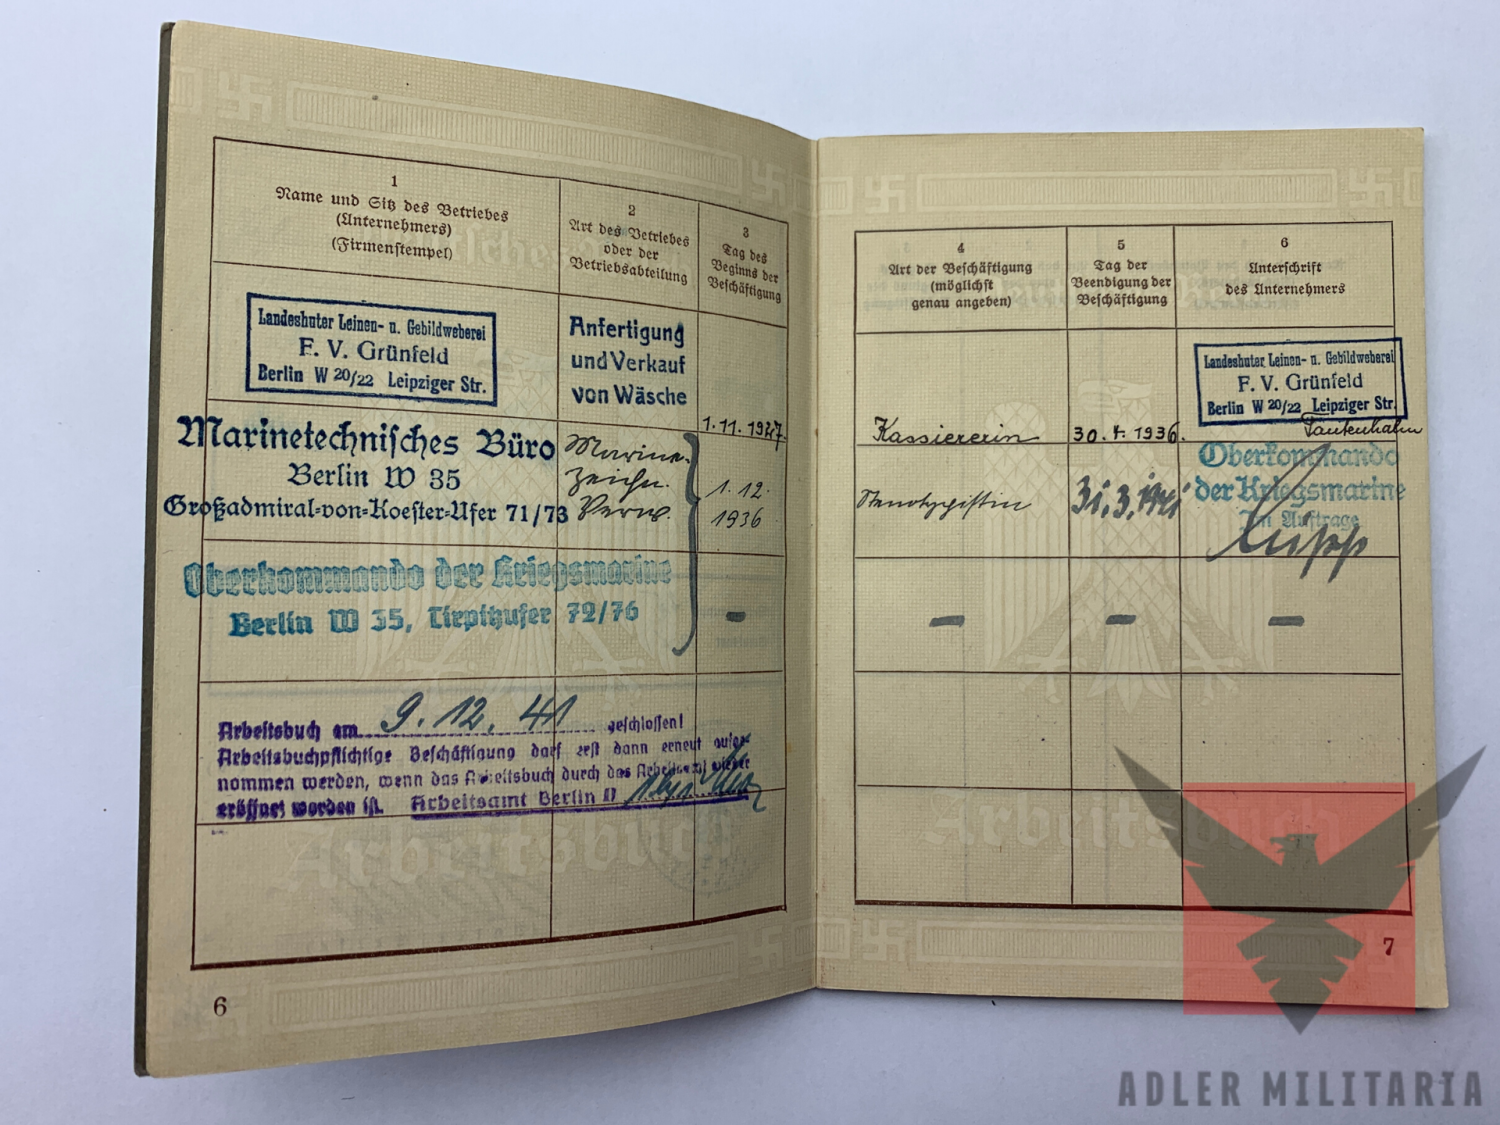 1
Name und Sitz des Betriebes
(Unternehmers)
(Firmenstempel)
2
Art des Betriebes
oder der
Betriebsabteilung
3
Tag des
Beginns der
Beschäftigung
Landeshuter Leinen- u. Gebildweberei
F. V. Grünfeld
Berlin W 20/22 Leipziger Str.
Anfertigung
und Verkauf
von Wäsche
1.11.1927.
Marinetechnisches Büro
Berlin W 35
Großadmiral-von-Koester-Ufer 71/73
Marine-
zeichn.
Verw.
1.12.
1936
Oberkommando der Kriegsmarine
Berlin W 35, Tirpitzufer 72/76
-
Arbeitsbuch am 9.12.41 geschlossen!
Arbeitsbuchpflichtige Beschäftigung darf erst dann erneut aufge-
nommen werden, wenn das Arbeitsbuch durch das Arbeitsamt wieder
eröffnet worden ist. Arbeitsamt Berlin
Arbeitsbuch
6
4
Art der Beschäftigung
(möglichst
genau angeben)
5
Tag der
Beendigung der
Beschäftigung
6
Unterschrift
des Unternehmers
Landeshuter Leinen- u. Gebildweberei
F. V. Grünfeld
Berlin W 20/22 Leipziger Str.
Kassiererin
30.4.1936.
Tautenhahn
Stenotypistin
31.3.1941
Oberkommando
der Kriegsmarine
Im Auftrage
- - -
Arbeitsbuch
7
ADLER MILITARIA